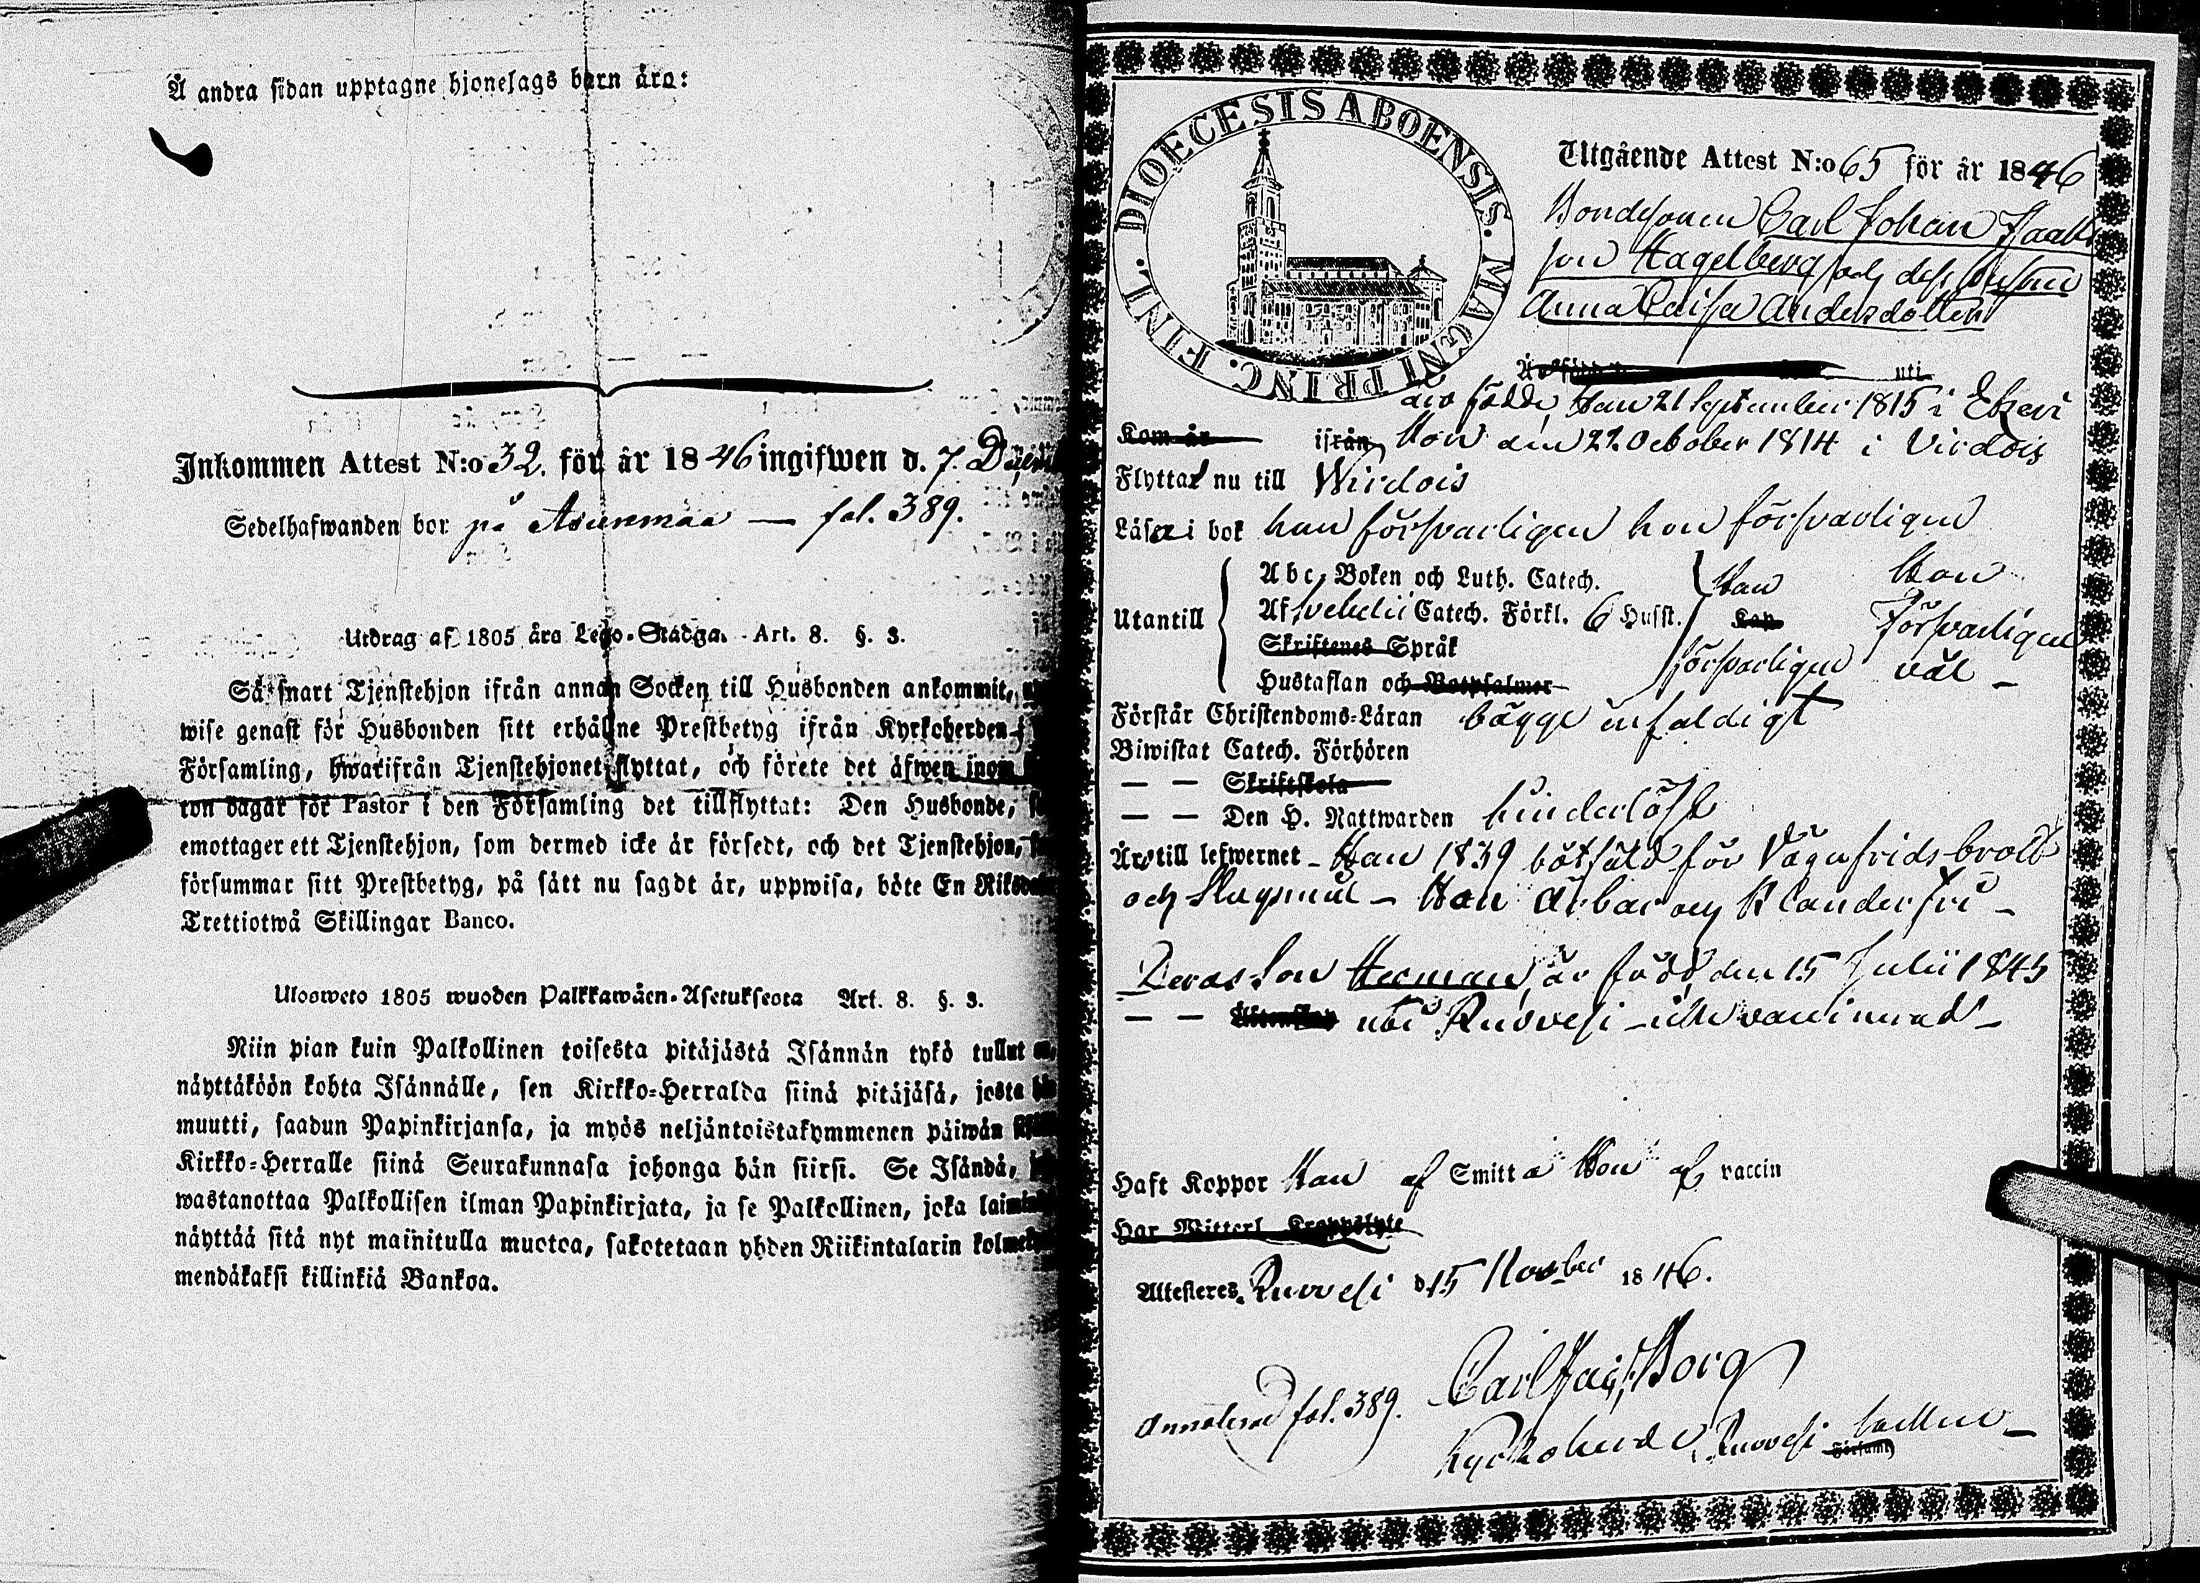 Å andra sidan upptagne hjonelags barn äro:
Inkommen Attest N:o 32. för år 1846 ingifwen d. 7.
Sedelhafwanden bor på Asunmaa — fol. 389.
Utdrag af 1805 åra Lego-Stadga. Art. 8. §. 3.
Så snart Tjenstehjon ifrån annan Socken till Husbonden ankommit,
wise genast för Husbonden sitt erhållne Prestbetyg ifrån Kyrkoherden i
Församling, hwarifrån Tjenstehjonet flyttat, och förete det äfwen inom
ton dagar för Pastor i den Församling det tillflyttat: Den Husbonde,
emottager ett Tjenstehjon, som dermed icke är försedt, och det Tjenstehjon,
försummar sitt Prestbetyg, på sätt nu sagdt är, uppwisa, böte En
Trettiotwå Skillingar Banco.
Ulosweto 1805 wuoden Palkkawäen-Asetuksesta Art. 8. §. 3.
Niin pian kuin Palkollinen toisesta pitäjästä Isännän tykö tullut
näyttäköön kohta Isännälle, sen Kirkko-Herralda siinä pitäjäsä, josta
muutti, saadun Papinkirjansa, ja myös neljäntoistakymmenen päiwän
Kirkko-Herralle siinä Seurakunnasa johonga hän siirsi. Se Isändä,
wastanottaa Palkollisen ilman Papinkirjata, ja se Palkollinen, joka
näyttää sitä nyt mainitulla muotoa, sakotetaan yhden Riikintalarin
mendäkaksi killinkiä Bankoa.
DIOECESIS ABOENSIS. MAGNI PRINC. FINL.
Utgående Attest N:o 65 för år 1846
Bondesonen Carl Johan
son Hagelberg och dess hustru
Anna Caisa Andersdotter
uti
äro födde, Han 21 September 1815 i
Kom år ifrån Hon den 22 October 1814 i Virdois
Flyttar nu till Wirdois
Läsa i bok han försvarligen hon försvarligen
Utantill
Abc Boken och Luth. Catech.
Af Svebelii Catech. Förkl. 6 Husst.
Skriftenes Språk
Hustaflan och Botpsalmer
Han Hon
försvarligen Försvarligen
väl –
Förstår Christendoms-Läran bägge enfaldigt
Biwistat Catech. Förhören
— — Skriftskola
— — Den H. Nattwarden hinderlöst
Äro till lefwernet – Han 1839 bötfäld för Vägafridsbrott
och Slagsmål – Hon ärbar och klanderfri –
Deras Son Herman, är född den 15 Julii 1845
— — uti Ruovesi – icke vaccinerad –
Haft Koppor Han af Smitta Hon af vaccin
Har Witterl. Kroppslyte
Attesteres. Ruovesi d. 15 Novber 1846.
Carl Borg
Annoterad fol. 389.
Kyrkoherde i Ruovesi Socken –
Församl.